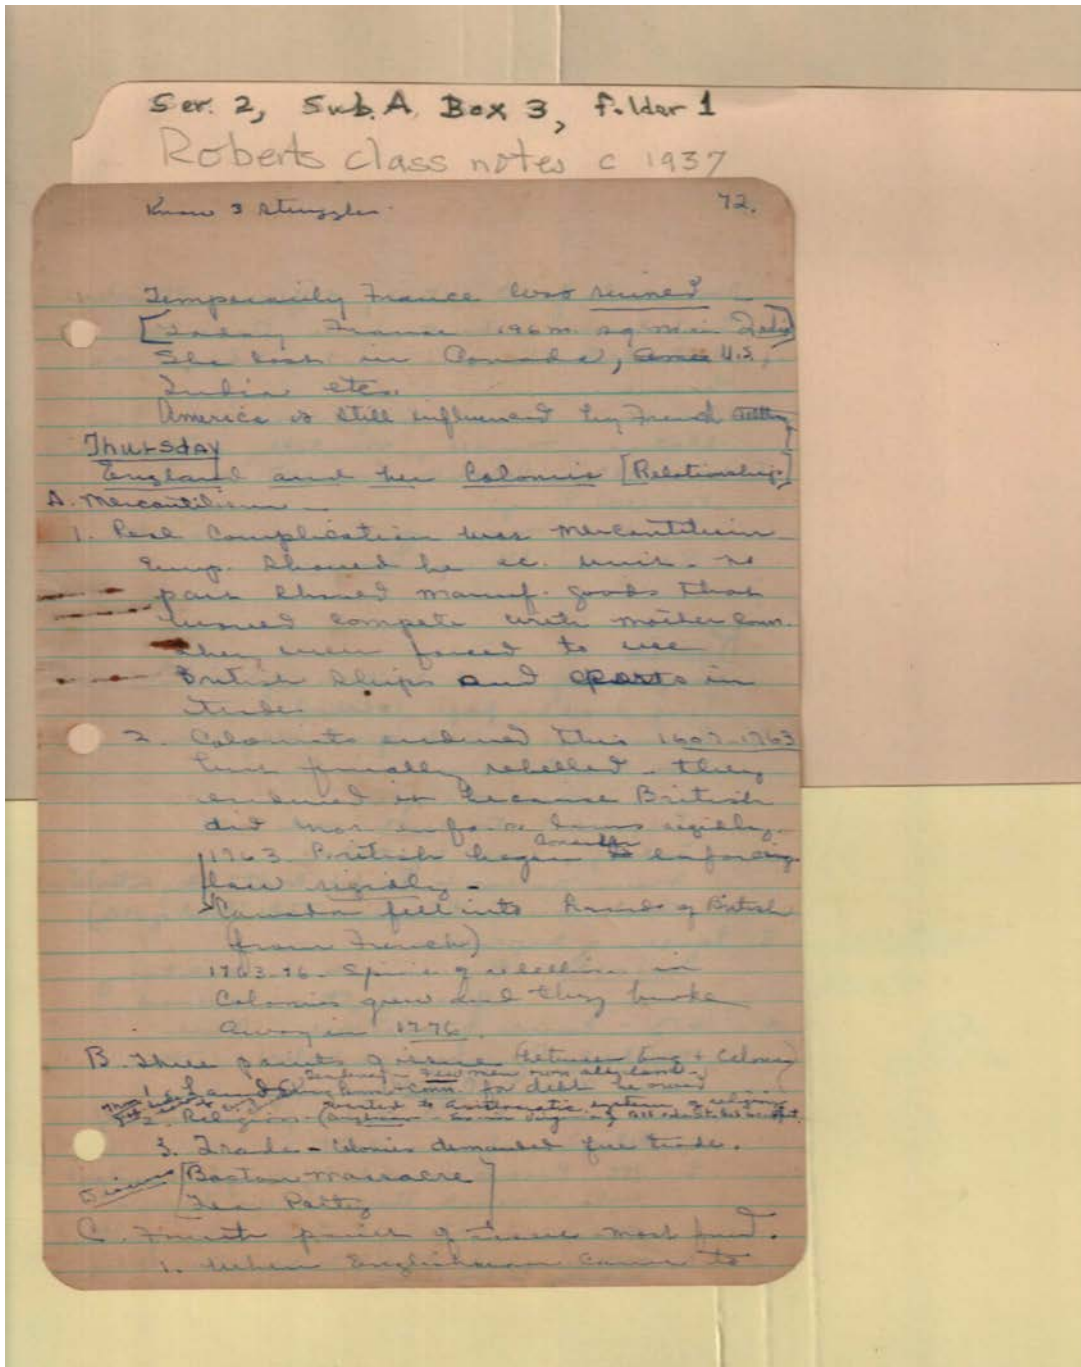 Ser. 2, Sub. A Box 3, folder 1
Roberts class notes c 1937
Know 3 struggles
72.
Temporarily France was ruined -
[Today France 196 m. sq mi in
She lost in Canada, U.S.,
India etc.
America is still influenced by French
Thursday
England and her Colonies [Relationship]
A. Mercantilism -
1. Real Complication was mercantilism
Emp. should be ec. unit - no
part should manuf. goods that
would compete with mother coun.
They were forced to use
British ships and ports in
trade.
2. Colonists endured this 1607-1763
finally rebelled - they
endured it because British
did not enforce laws rigidly -
1763 British began enforcing
law rigidly -
Canada fell into hands of British
(from French)
1763-76 - Spirit of rebellion in
Colonies grew and they broke
away in 1776.
B. Three points of issue (between Eng + Colonies)
few men own all land -
1. Land for debt he owed
2. Religion - aristocratic system of religion
3. Trade - Colonies demanded free trade.
[Boston Massacre
Tea Party]
C. Fourth point of issue most fund.
1. When Englishman came to